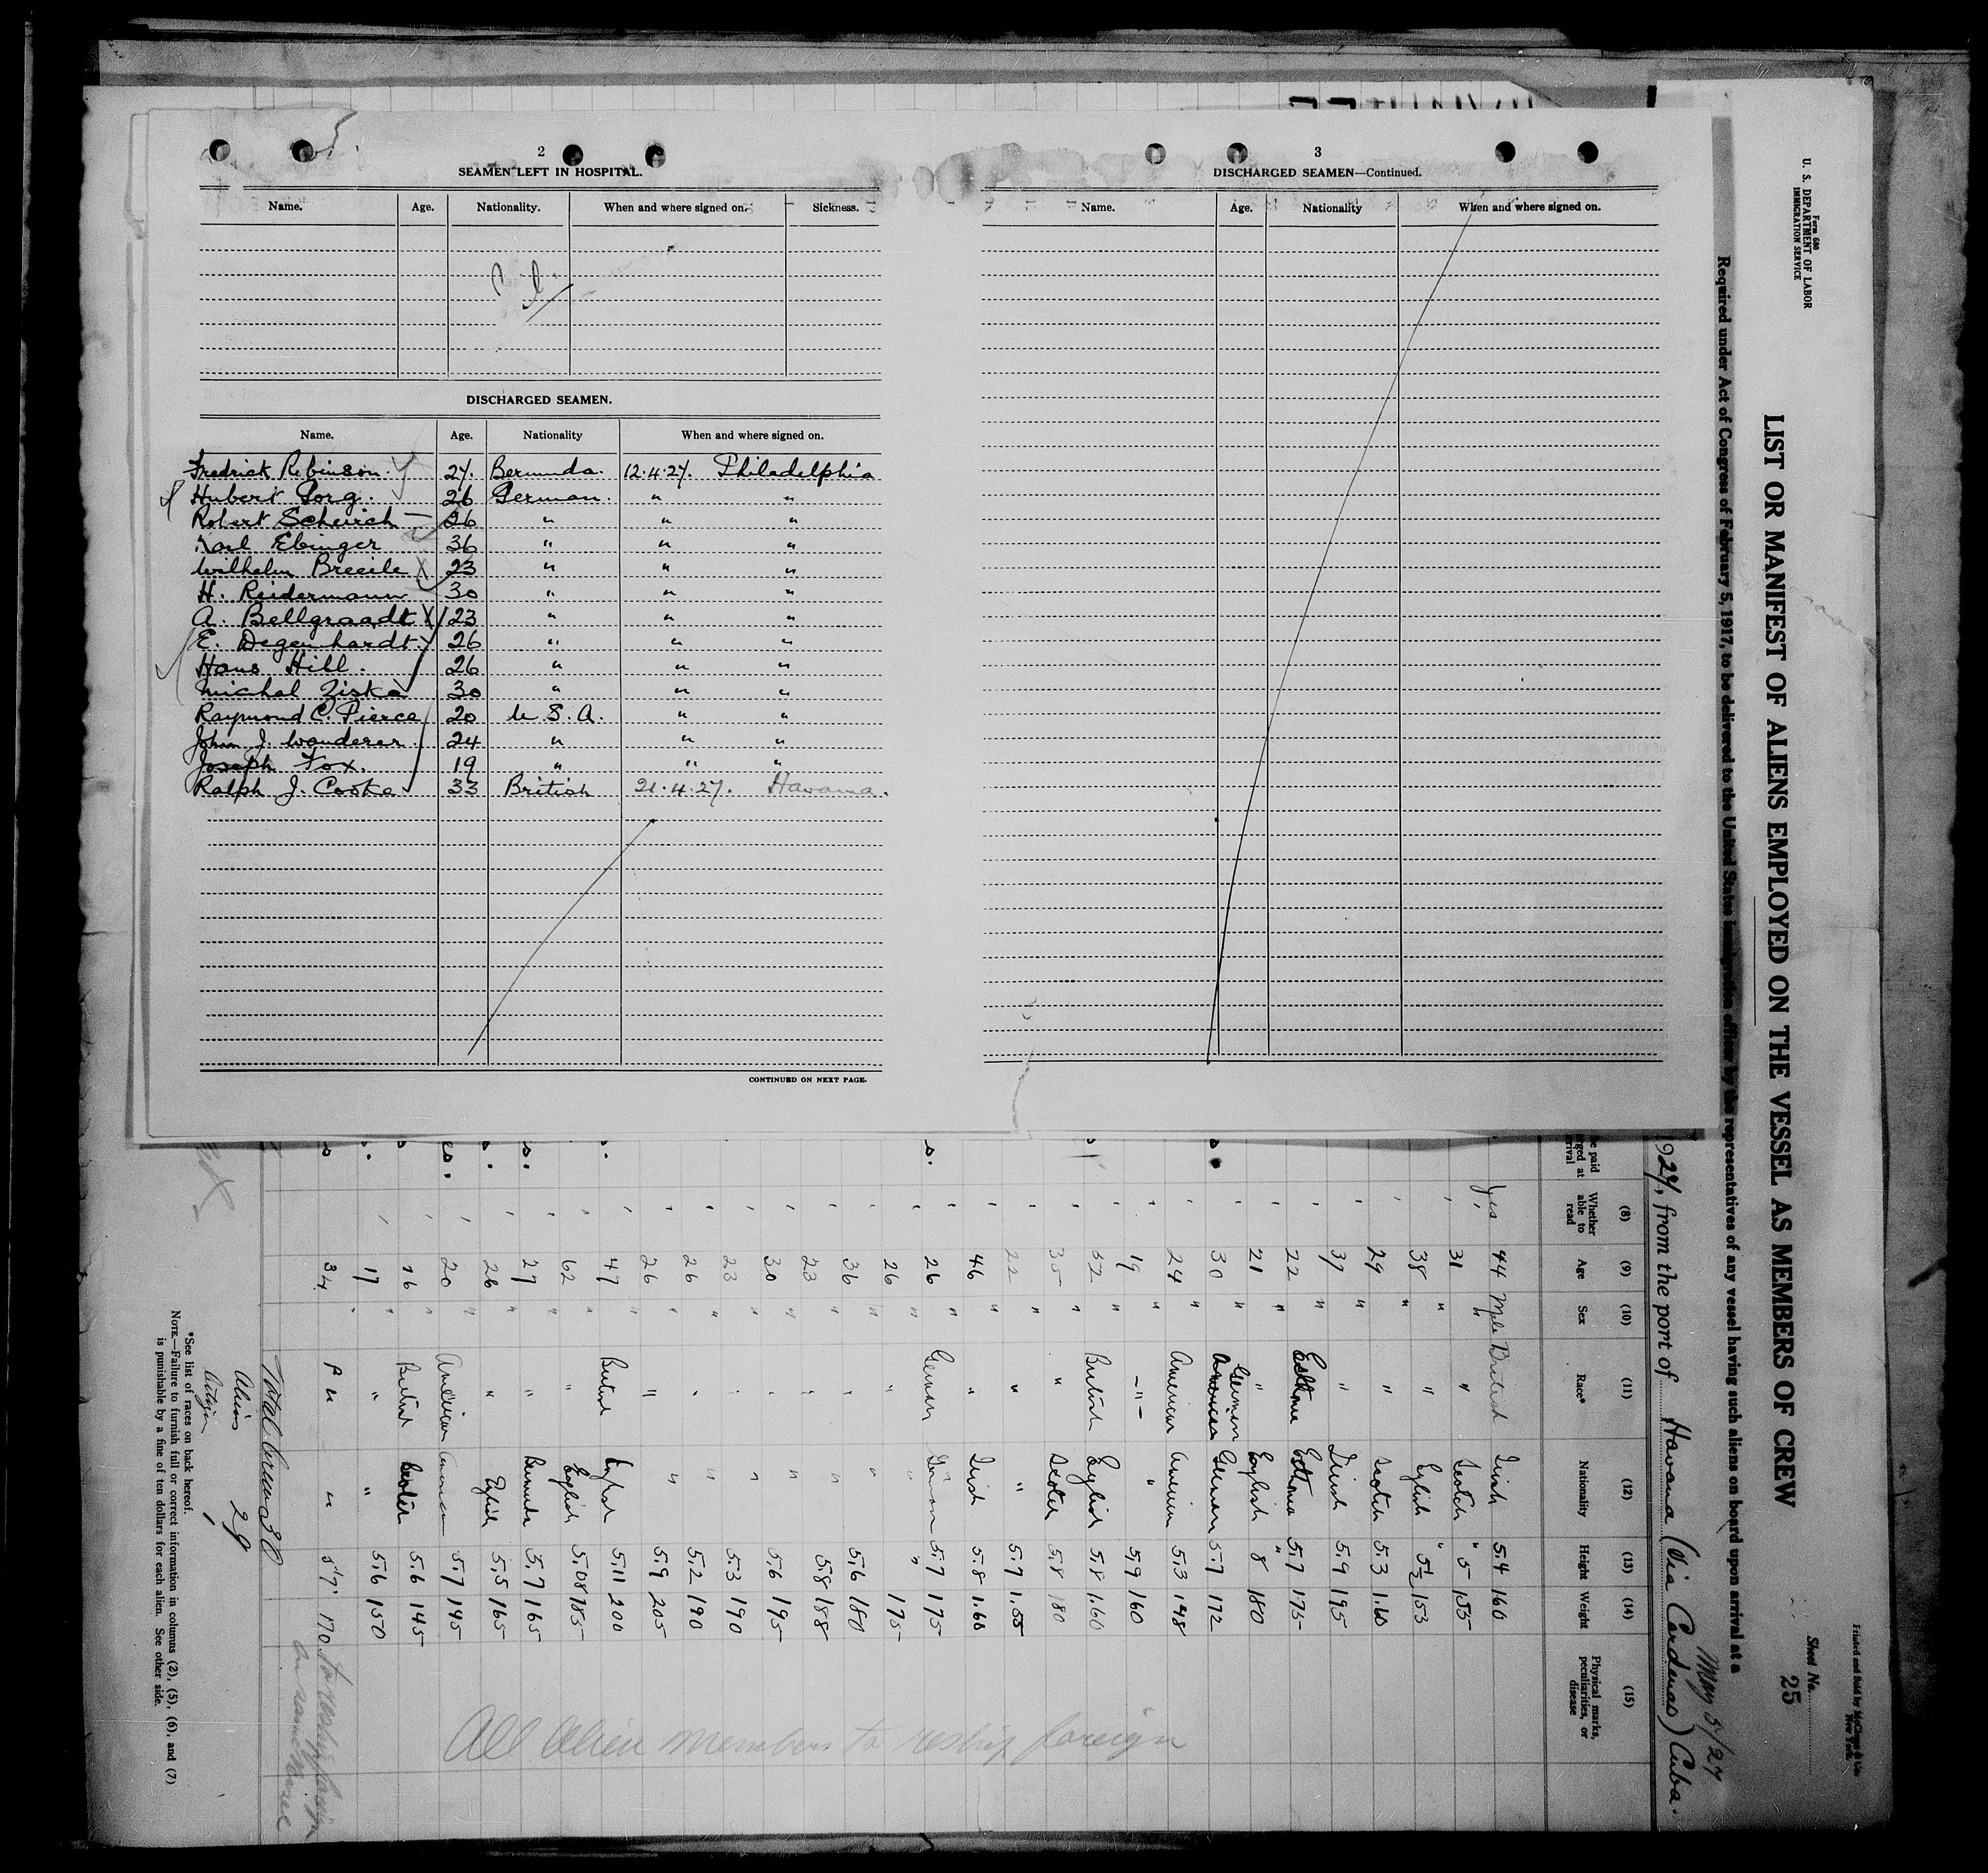 2
SEAMEN LEFT IN HOSPITAL.
Name. Age. Nationality. When and where signed on. Sickness.
DISCHARGED SEAMEN.
Name. Age. Nationality When and where signed on.
Fredrick Robinson. 27. Bermuda. 12.4.27. Philadelphia
Hubert Porg. 26 German. " "
Robert Scheuch 26 " " "
Karl Ebinger 36 " " "
Wilhelm Breeile 23 " " "
H. Reidermann 30 " " "
A. Bellgraadt 23 " " "
E. Degenhardt. 26 " " "
Hans Hill. 26 " " "
Michal Ziska 30 " " "
Raymond C. Pierce 20 U.S.A. " "
John J. Wanderer. 24 " " "
Joseph Fox. 19 " " "
Ralph J. Cooke 33 British 21.4.27. Havana.
CONTINUED ON NEXT PAGE.
3
DISCHARGED SEAMEN—Continued.
Name. Age. Nationality When and where signed on.
Form 680
U. S. DEPARTMENT OF LABOR
IMMIGRATION SERVICE
Sheet No. 25
LIST OR MANIFEST OF ALIENS EMPLOYED ON THE VESSEL AS MEMBERS OF CREW
Required under Act of Congress of February 5, 1917, to be delivered to the United States immigration officer by the representatives of any vessel having such aliens on board upon arrival at a
May 5/27
1927, from the port of Havana (via Cardenas) Cuba.
(8) (9) (10) (11) (12) (13) (14) (15)
Whether able to read Age Sex Race* Nationality Height Weight Physical marks, peculiarities, or disease
Yes 44 Male British Irish 5.4 160
" 31 " " Scotch " 5 155
" 38 " " English " 5½ 153
" 29 " " Scotch 5.3 160
" 39 " " Irish 5.9 195
" 22 " Esthonia Esthonia 5.7 175
" 21 " " English " 8 180
" 30 " American German German 5.7 172
" 24 " American American 5.3 148
" 19 " -"- " 5.9 160
" 32 " British English 5.8 1.60
" 35 " " Scotch 5.8 180
" 22 " " " 5.7 1.55
" 46 " " Irish 5.8 1.60
" 26 " German German 5.7 175
" 26 " " " " 175
" 36 " " " 5.6 180
" 23 " " " 5.8 188
" 30 " " " 5.6 195
" 23 " " " 5.3 190
" 26 " " " 5.2 190
" 26 " " " 5.9 205
" 47 " British English 5.11 200
" 62 " " English 5.08 185
" 27 " " Bermuda 5.7 165
" 26 " " English 5.5 165
" 20 " American American 5.7 145
" 16 " British Scotch 5.6 145
" 17 " " " 5.6 150
34 " " " 5'7" 170
To reship foreign
All Alien members to reship foreign
Total Crew 30
Aliens 29
Citizen 1
*See list of races on back hereof.
NOTE.—Failure to furnish full or correct information in columns (2), (5), (6), and (7)
is punishable by a fine of ten dollars for each alien. See other side.